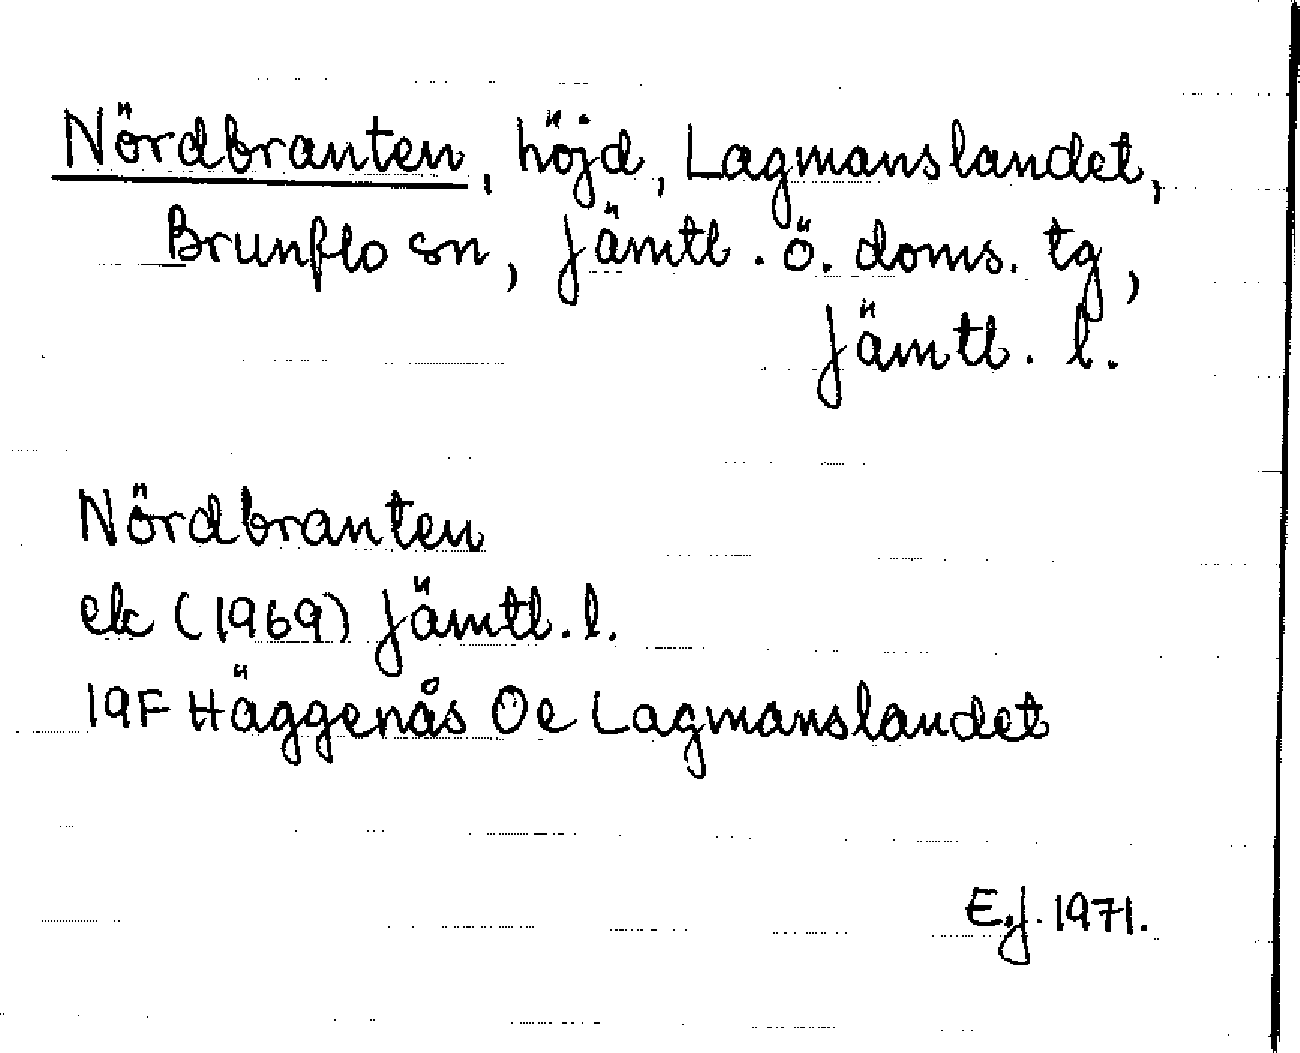 Nördbranten, höjd, Lagmanslandet,
Brunflo sn, Jämtl. ö. doms. tg,
Jämtl. l.
Nördbranten
ek (1969) Jämtl. l.
19F Häggenås Oe Lagmanslandet
E.J. 1971.